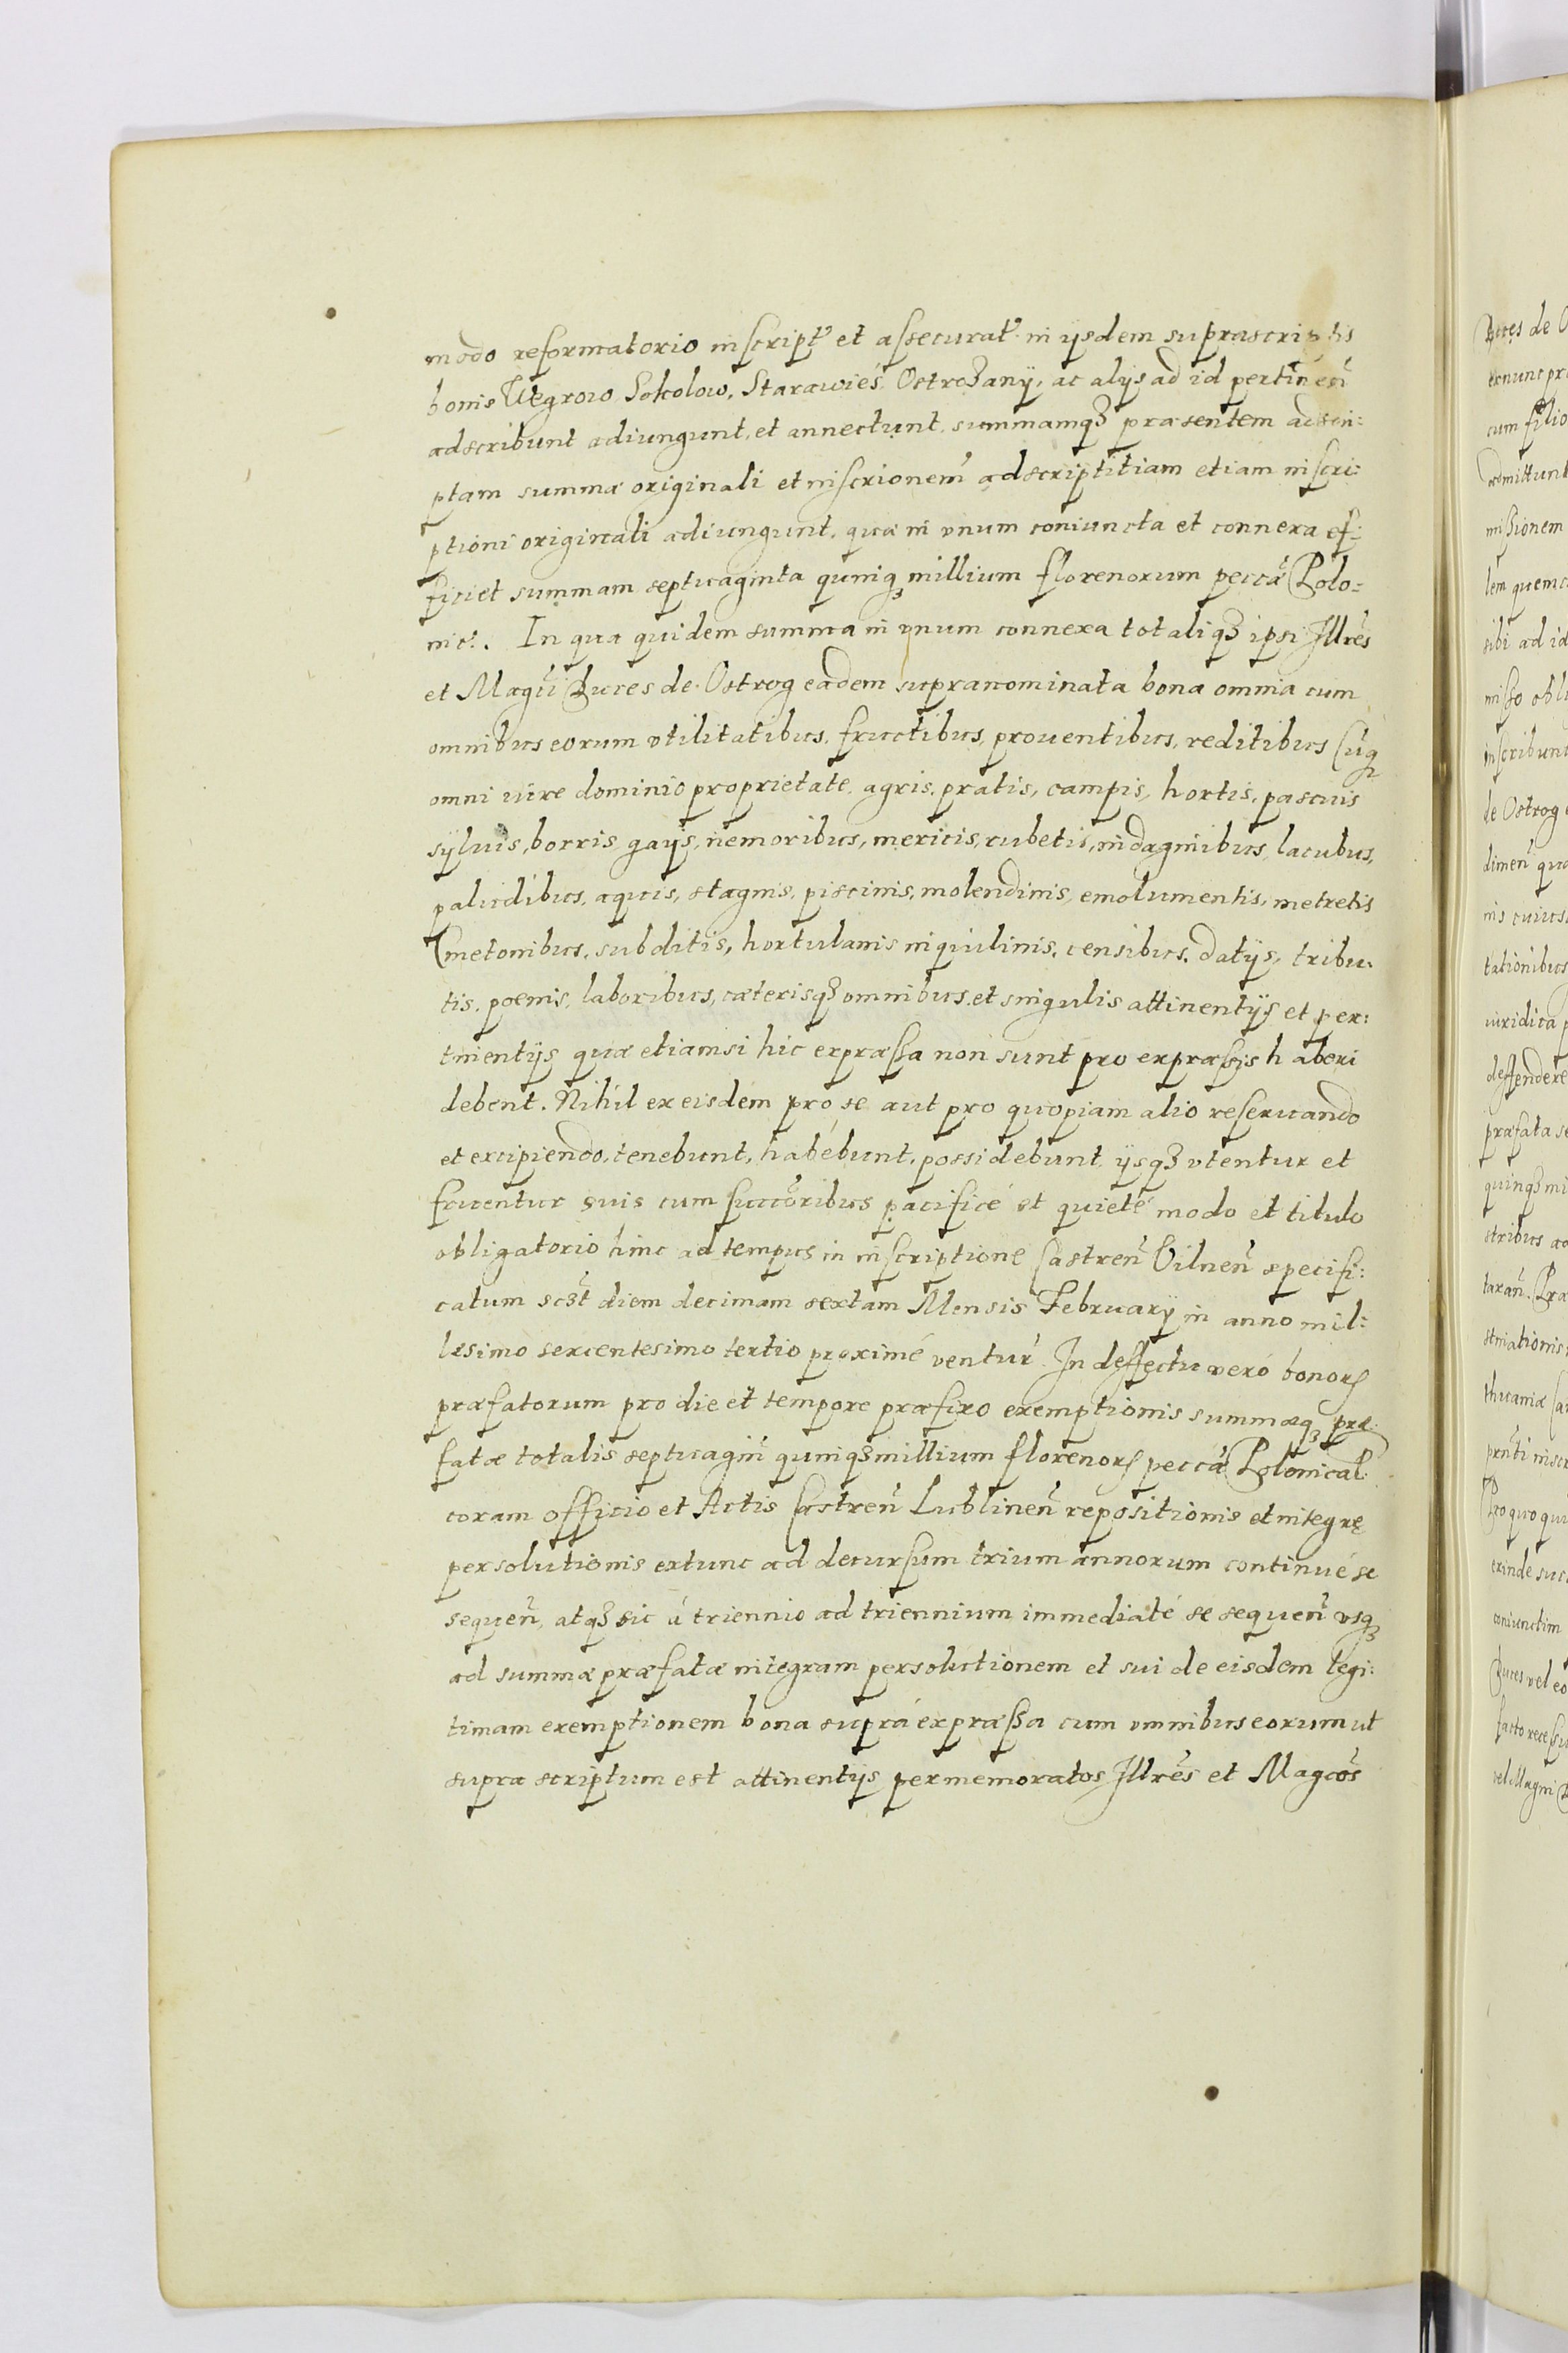 modo reformatorio inscript: et assecurat: in ijsdem suprascriptis
bonis Wegrow Sokolow, Starawieś, Ostrożany, ac alijs ad id pertinen̄
adscribunt adiungunt, et annectunt, summamqȝ præsentem adscri:
ptam summæ originali et inscrionem̄ adscriptitiam etiam inscri:
ptioni originali adiungunt, quæ in vnum coniuncta et connexa ef:
ficiet summam septuaginta quinqȝ millium florenorum peccæ Polo:
nic:. In qua quidem summa in vnum connexa totaliqȝ ipsi Illres
et Magci Duces de Ostrog eadem supranominata bona omnia cum
omnibus eorum vtilitatibus, fructibus, prouentibus, reditibus Cuqȝ
omni iure dominio proprietate, agris, pratis, campis, hortis, pascuis
syluis, borris, gayis, nemoribus, mericis, rubetis, indaginibus, lacubus,
paludibus, aquis, stagnis, piscinis, molendinis, emolumentis, metretis
Cmetonibus, subditis, hortulanis inquilinis, censibus, datijs, tribu:
tis, poenis, laboribus, cæterisqȝ omnibus et singulis attinentijs et per:
tinentijs quæ etiamsi hic expræssa non sunt pro expræssis haberi
debent. Nihil ex eisdem pro se aut pro quopiam alio reseruando
et excipiendo, tenebunt, habebunt, possidebunt ijsqȝ vtentur et
fruentur suis cum succoribus pacificé et quieté modo et titulo
obligatorio hinc ad tempus in inscriptione Castren̄ Vilnen̄ specifi:
catum scȝt diem decimam sextam Mensis February in anno mil:
lesimo sexcentesimo tertio proximé ventur̄. In deffectu veró bonorʒ
præfatorum pro die et tempore præfixo exemptionis summæqȝ præ:
fatæ totalis septuagin̄ quinqȝ millium florenorʒ peccæ Polonical:
coram Officio et Actis Castren̄ Lublinen̄ repositionis et integrę
persolutionis extunc ad decursum trium annorum continué se
sequen̄, atqȝ sic á triennio ad triennium immediaté se sequen̄ vsqȝ
ad summæ præfatæ integram persolutionem et sui de eisdem legi:
timam exemptionem bona suprá expræssa cum omnibus eorum ut
supra scriptum est attinentijs per memoratos Illres et Magcos